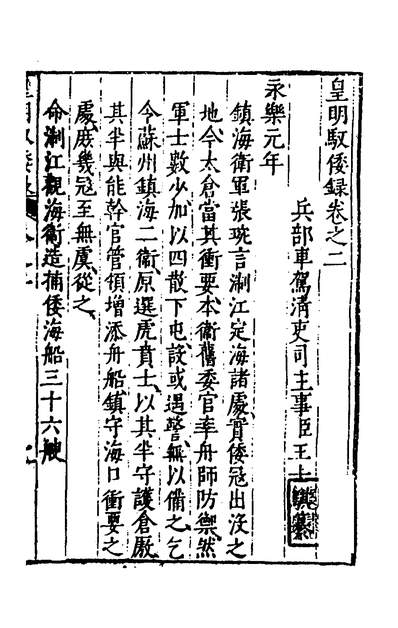 皇明馭倭録卷之二
兵部車駕清吏司主事臣王士騏纂
永樂元年
鎮海衛軍張琬言淛江定海諸處實倭冦出沒之
地今太倉當其衝要本衛舊委官率舟師防禦然
軍士數少加以四散下屯設或遇警無以備之乞
令蘇州鎮海二衛原選虎賁士以其半守護倉厫
其半與能幹官管領增添舟船鎮守海口衝要之
處庻幾冦至無虞從之
命淛江觀海衛造捕倭海船三十六艘